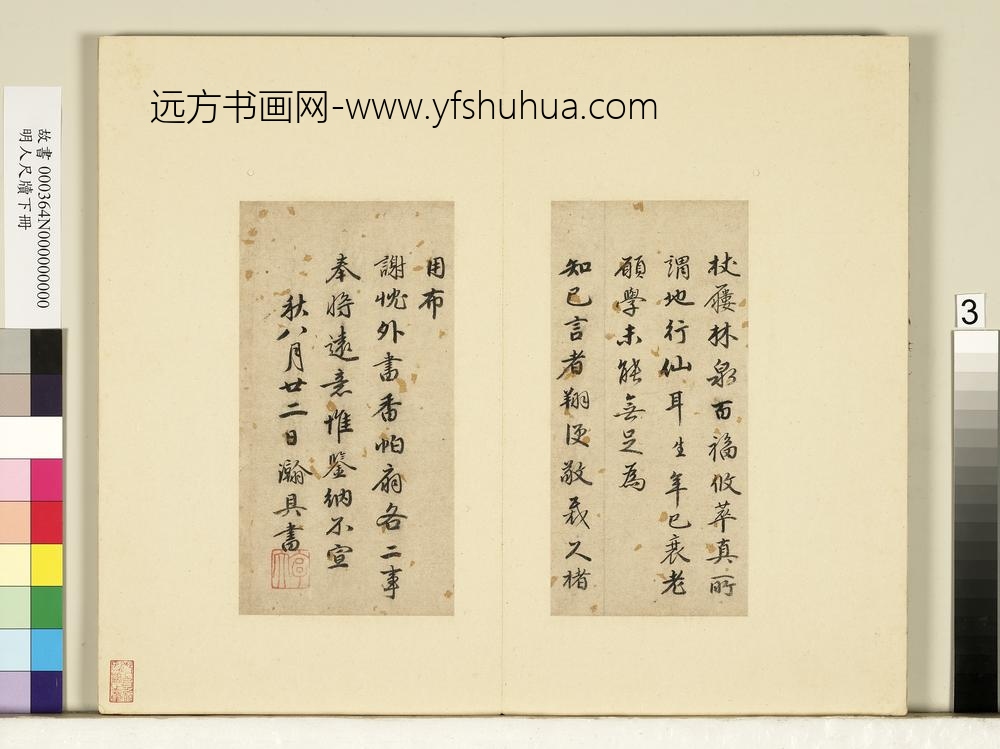 远方书画网-www.yfshuhua.com
故書 000364N000000000
明人尺牘下冊
3
杖屨林泉百福攸萃真所
謂地行仙耳生年已衰老
願學未能無足為
知己言者翔便敬裁久楮
用布
謝忱外書香帕扇各二事
奉將遠意惟鑒納不宣
秋八月廿二日瀚具書